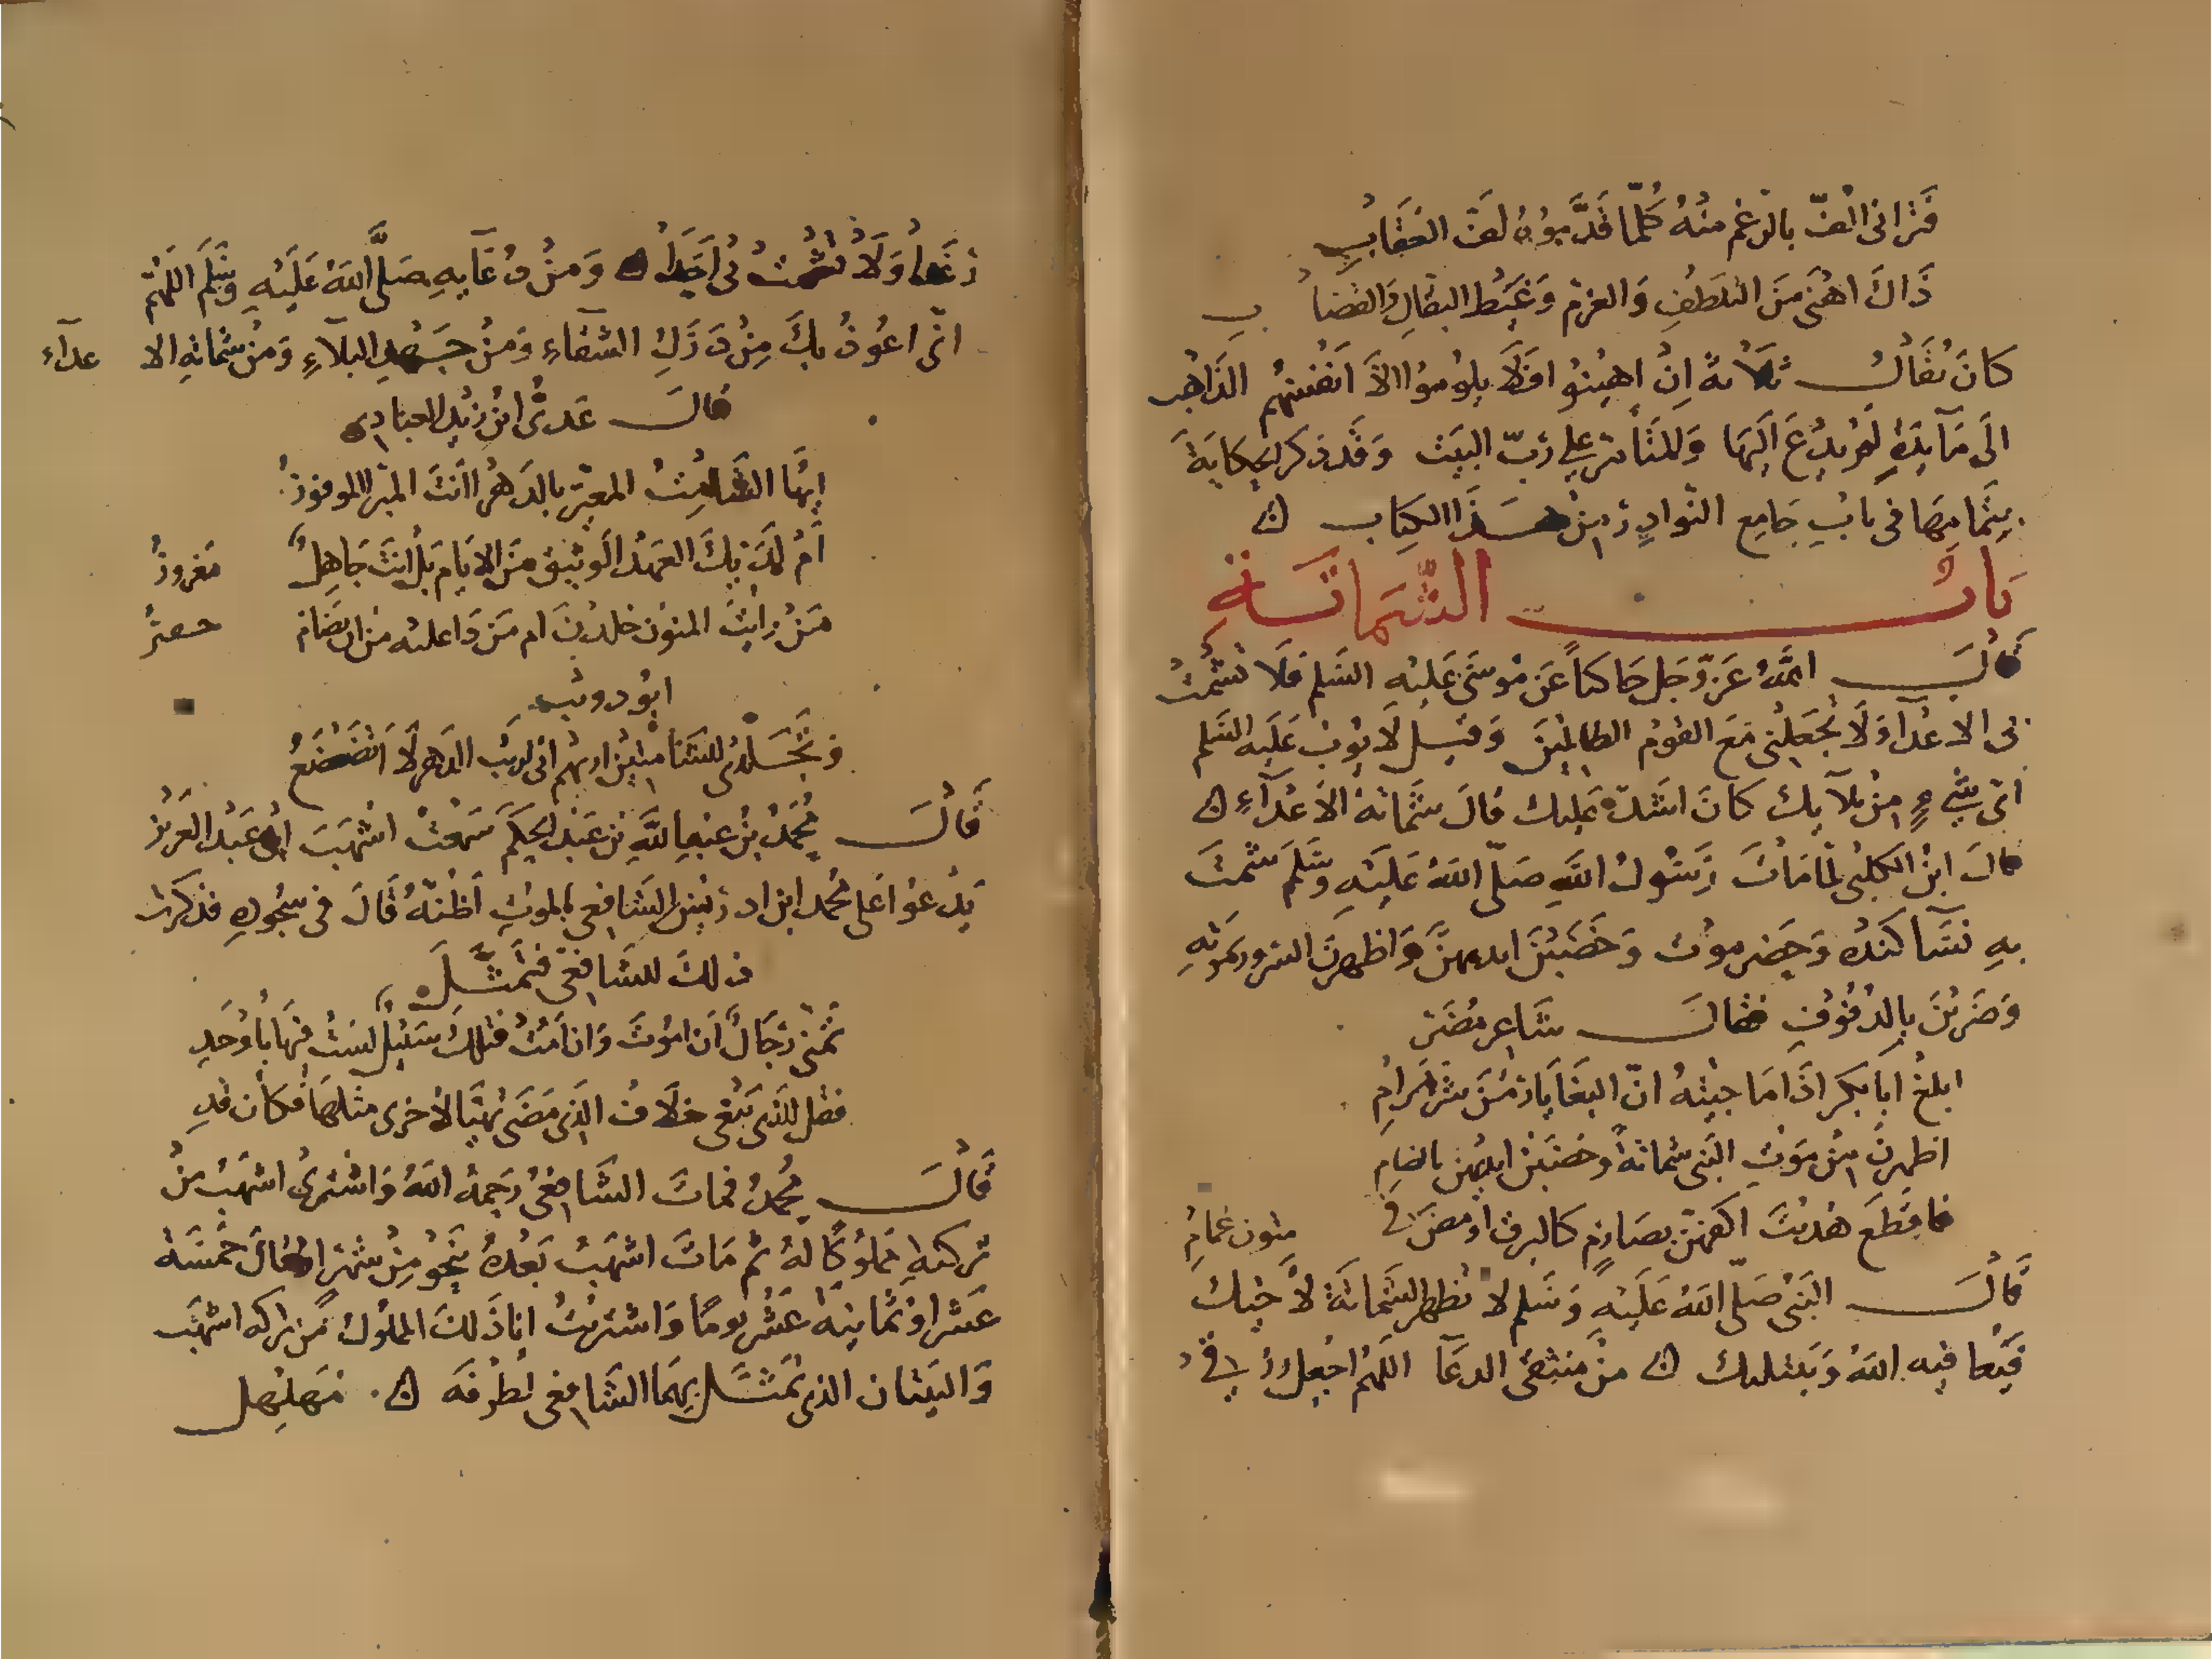 فتراني الف بالرغم منه كلما قدموه لف العقاب
ذاك اهنى من التلطف والغرم وغيظ البقال والقصاب
كان يقال ثلاثة ان اهينوا فلا يلوموا الا انفسهم الذاهب
الى مآئدة لم يدع اليها والمتأمر على رب البيت وقد ذكر الحكاية
بتمامها في باب جامع النوادر من هذا الكتاب ن
باب الشماتة
قال الله عز وجل حاكيا عن موسى عليه السلم فلا تشمت
بي الاعدا ولا تجعلني مع القوم الظالمين وقيل لايوب عليه السلم
اي شيء من بلآيك كان اشد عليك قال شماتة الاعدآء ن
قال ابن الكلبي لما مات رسول الله صلى الله عليه وسلم شمت
به نسآ كنده وحضرموت وخضبن ايديهن واظهرن السرور بموته
وضربن بالدفوف فقال شاعر مضر
ابلغ ابا بكر اذا ما جيته ان البغايا رمن شر مرام
اظهرن من موت النبي شماتة وخضبن ايديهن بالعلام
فاقطع هديت اكفهن بصارم كالبرق اومض في متون غمام
قال النبي صلى الله عليه وسلم لا تظهر الشماتة لاخيك
فيعافيه الله ويبتليك ن من منتقى الدعآ اللهم اجعل رزقي
رغدا ولا تشمت بي احدا ن ومن دعآيه صلى الله عليه وسلم اللهم
اني اعوذ بك من درك الشقاء ومن جهد البلآء ومن شماتة الاعدآء
قال عدي ابن زيد العبادي
ايها الشامت المعير بالدهر اانت المبرا الموفور
ام لديك العهد الوثيق من الايام بل انت جاهل مغرور
من رايت المنون خلدن ام من ذا عليه من ان يضام خفير
ابو ذويب
وتجلدي للشامتين اريهم اني لريب الدهر لا اتضعضع
قال محمد بن عبد الله بن عبد الحكم سمعت اشهب ابن عبد العزيز
يدعوا على محمد ابن ادريس الشافعي بالموت اظنه قال في سجوده فذكرت
ذلك للشافعي فتمثل
تمنى رجال ان اموت وان امت فتلك سبيل لست فيها باوحد
فقل للذي يبغي خلاف الذي مضى تهيا لاخرى مثلها فكان قد
قال محمد فمات الشافعي رحمه الله واشترى اشهب من
تركته مملوكا له ثم مات اشهب بعده بنحو من شهر او قال خمسة
عشر او ثمانية عشر يوما واشتريت انا ذلك المملوك من تركه اشهب
والبيتان الذي تمثل بهما الشافعي لطرفه ن مهلهل